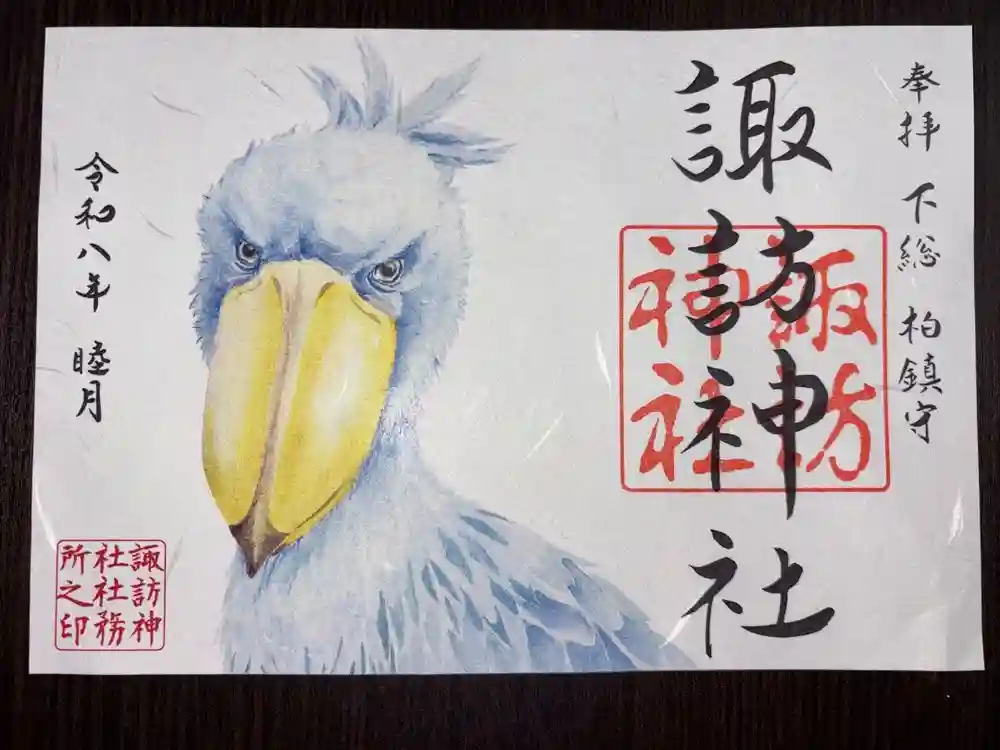 奉拝 下総 柏鎮守
諏訪神社
諏訪
神社
令和八年 睦月
諏訪神
社社務
所之印